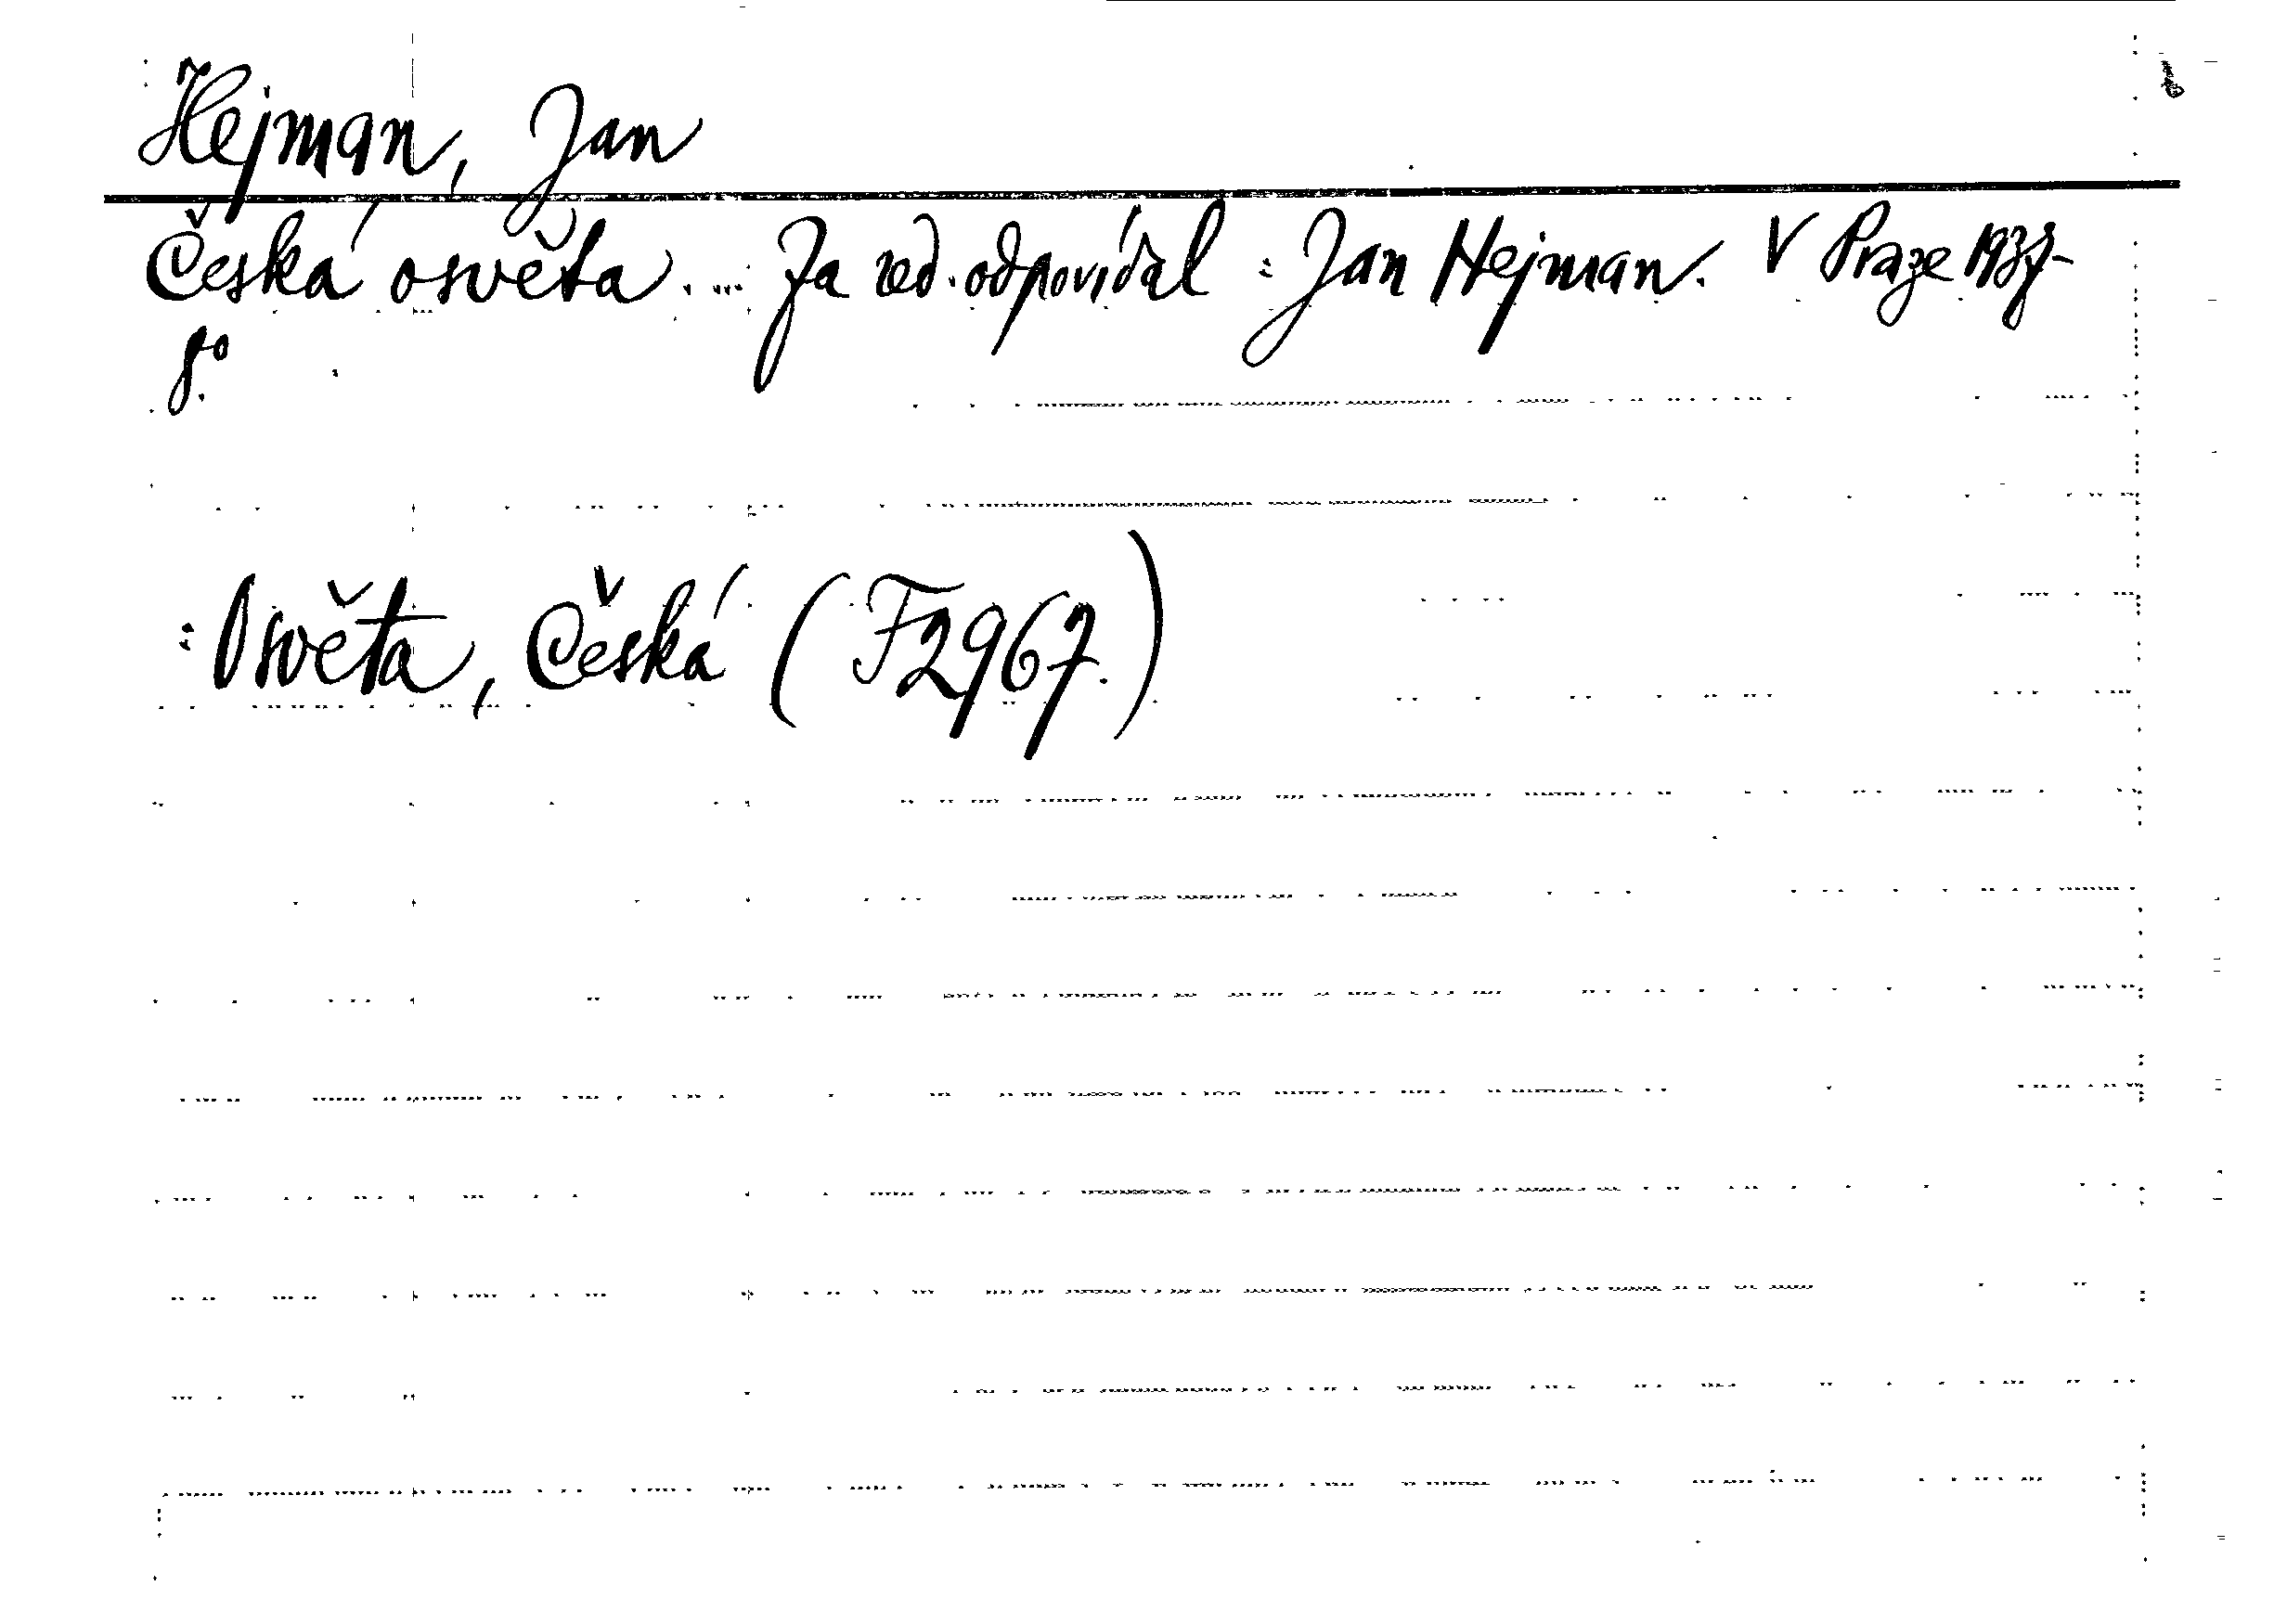 Hejman, Jan
Česká osvěta. ... Za red. odpovídal: Jan Hejman. V Praze 1937-
8°.
: Osvěta, Česká (F2967.)